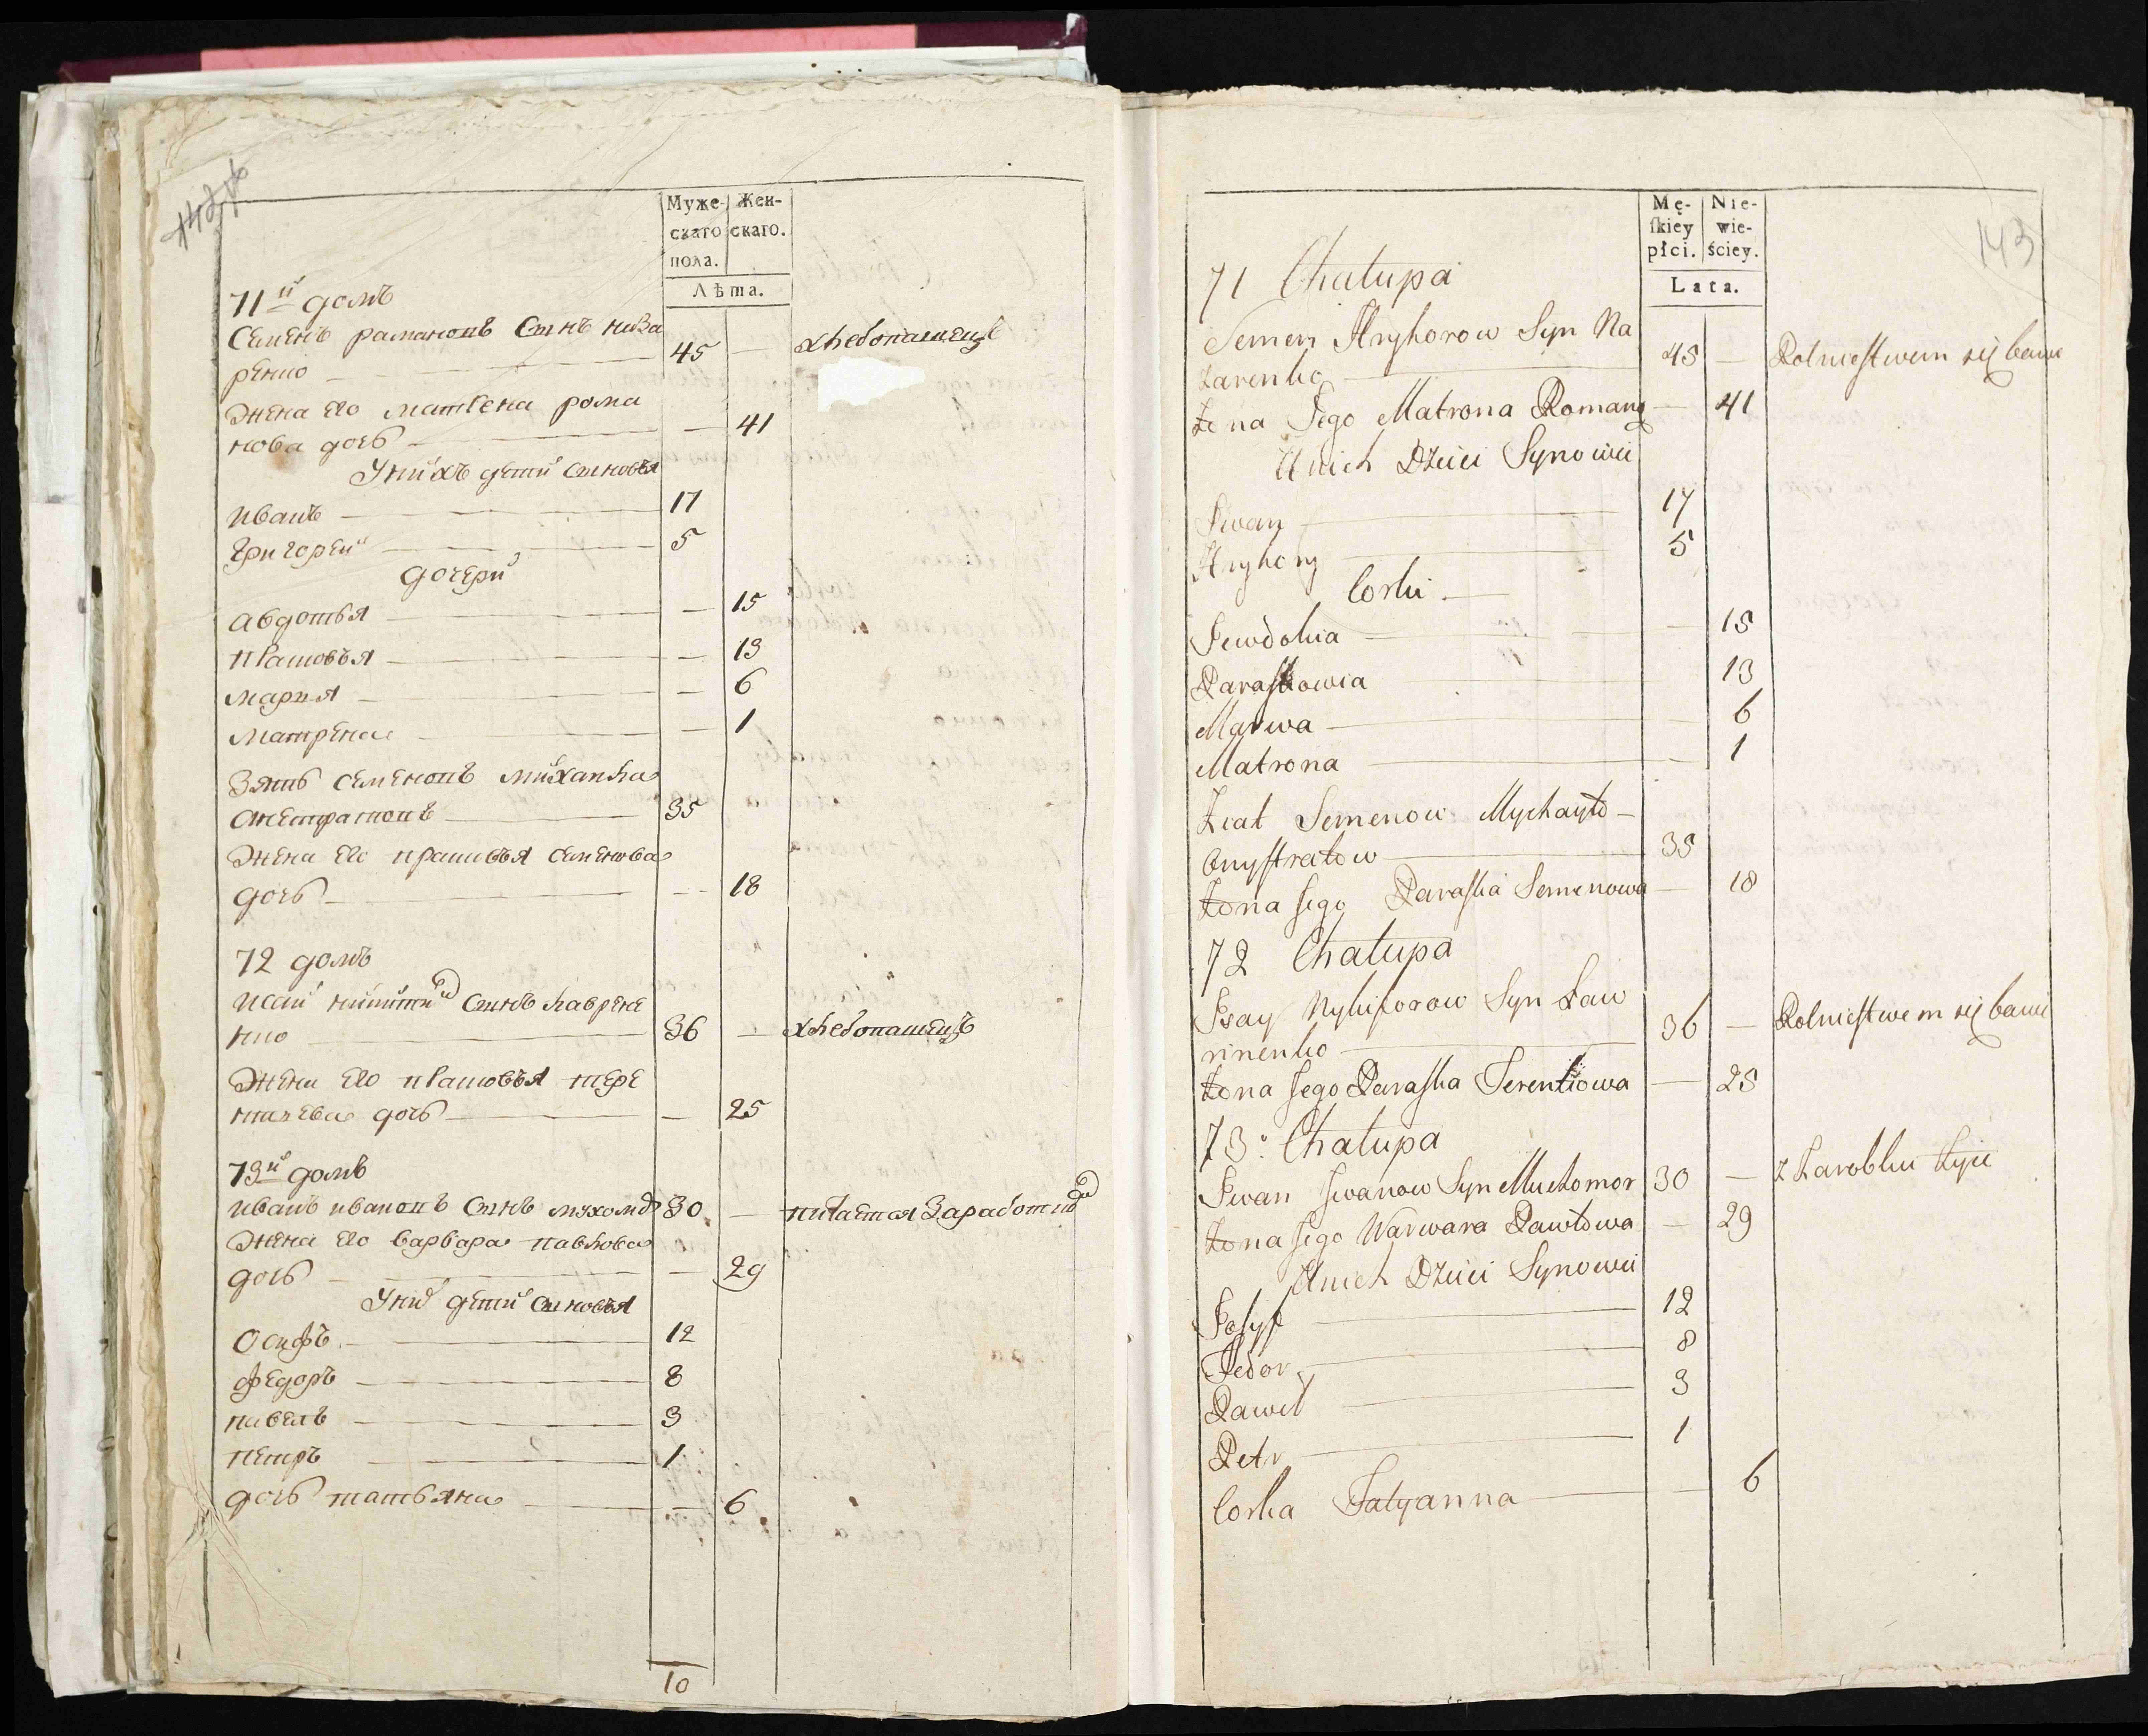 142
Муже- Жен-
скаго скаго.
пола.
Лѣта.
71й домъ
Семенъ рамановъ Синъ наза
ренко 45 — хлебопашецъ
Жена Его матрена рома
нова дочь — 41
У нихъ дети Синовья
иванъ 17
Григорей 5
дочери
авдотья — 15
праковья — 13
мария — 6
матрена — 1
Зять семеновъ михайла
онестратовъ 35
Жена Его прасковья семенова
дочь — 18
72 домъ
исай никити Синъ лаврене
нко 36 — хлебопашецъ
Жена Его праковья тере
нтиева дочь — 25
73й домъ
иванъ ивановъ Синъ мухомо 30 — питается Заработко
Жена Его варвара павлова
дочь — 29
У них дети Синовья
Осифъ 12
федоръ 8
павелъ 3
петръ 1
дочь татьяна — 6
10
143
Mę- Nie-
ſkiey wie-
płci. ściey.
Lata.
71 Chałupa
Semen Hryhorow Syn Na
zarenko 45 — Rolnictwem się bawi
Żona Jego Matrona Romano — 41
U nich Dzieci Synowie
Iwan 17
Hryhory 5
Corki
Jewdokia — 15
Paraskowia 13
Marwa — 6
Matrona — 1
Ziat Semenow Mychayło
Onyſtratow 35
Żona Jego Paraſka Semenowa — 18
72 Chałupa
Isay Nykiforow Syn Ław
rinenko 36 — Rolnictwem się bawi
Żona Jego Paraſka Terentiowa — 25
73. Chałupa
Iwan Iwanow Syn Muchomor 30 — z Zarobku żyie
Żona Jego Warwara Pawłowa — 29
U nich Dzieci Synowie
Josyf 12
Fedor 8
Paweł 3
Petr 1
Corka Tatyanna — 6